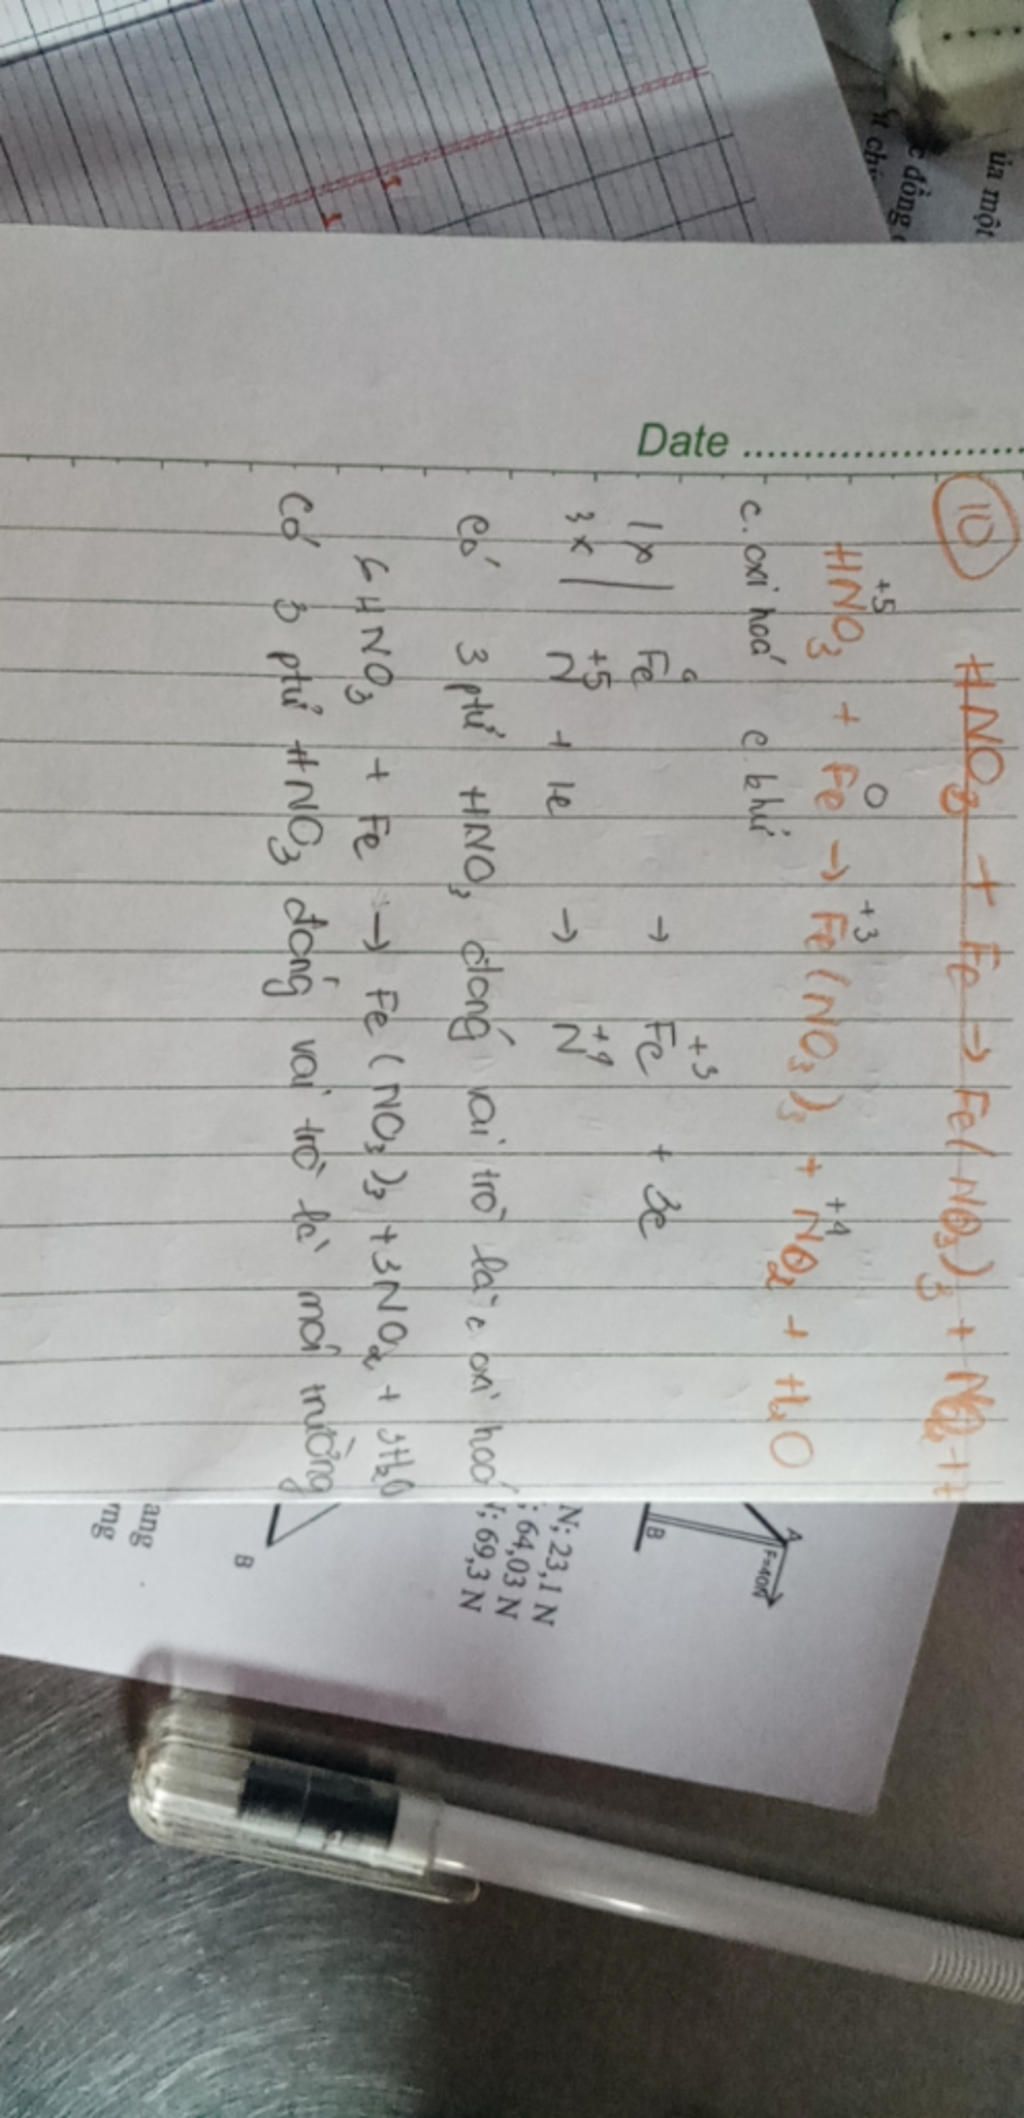 úa một
c đồng
Date
10 HNO3 + Fe → Fe(NO3)3 + NO2 +
+5 0 +3 +4
HNO3 + Fe → Fe(NO3)3 + NO2 + H2O
c. oxi hoá c. khử
1x | Fe0 → Fe+3 + 3e
3x | N+5 + 1e → N+4
Có 3 ptử HNO3 đóng vai trò là c oxi hoá
6HNO3 + Fe → Fe(NO3)3 + 3NO2 + 3H2O
Có 3 ptử HNO3 đóng vai trò là môi trường
A
F=40N
B
N; 23,1 N
; 64,03 N
; 69,3 N
B
ang
mg